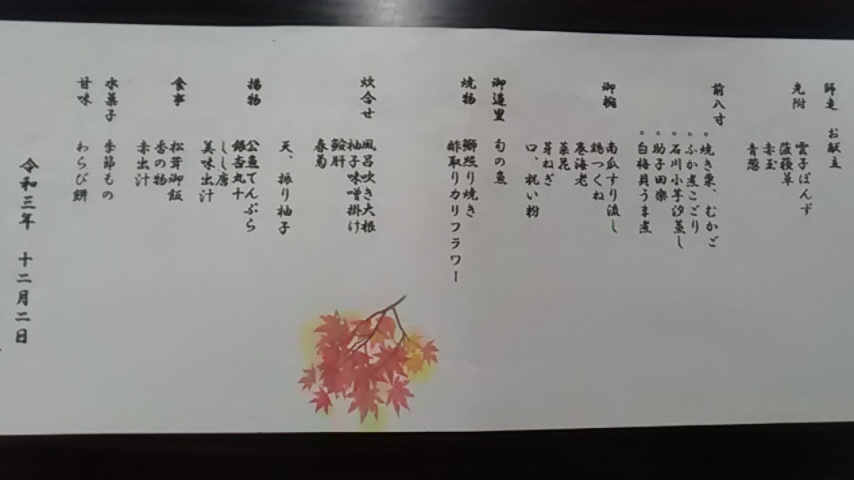 師走 お献立
先附 雲子ぽんず
菠薐草
赤玉
青葱
前八寸 。焼き栗、むかご
。ふか煮こごり
。石川小芋汐蒸し
。助子田楽
。白梅貝うま煮
御椀 南瓜すり流し
鶏つくね
巻海老
菜花
芽ねぎ
口、祝い粉
御造里 旬の魚
焼物 鰤照り焼き
酢取りカリフラワー
炊合せ 風呂吹き大根
柚子味噌掛け
鮟肝
春菊
天、振り柚子
揚物 公魚てんぷら
銀杏丸十
しし唐
美味出汁
食事 松茸御飯
香の物
赤出汁
水菓子 季節もの
甘味 わらび餅
令和三年 十二月二日